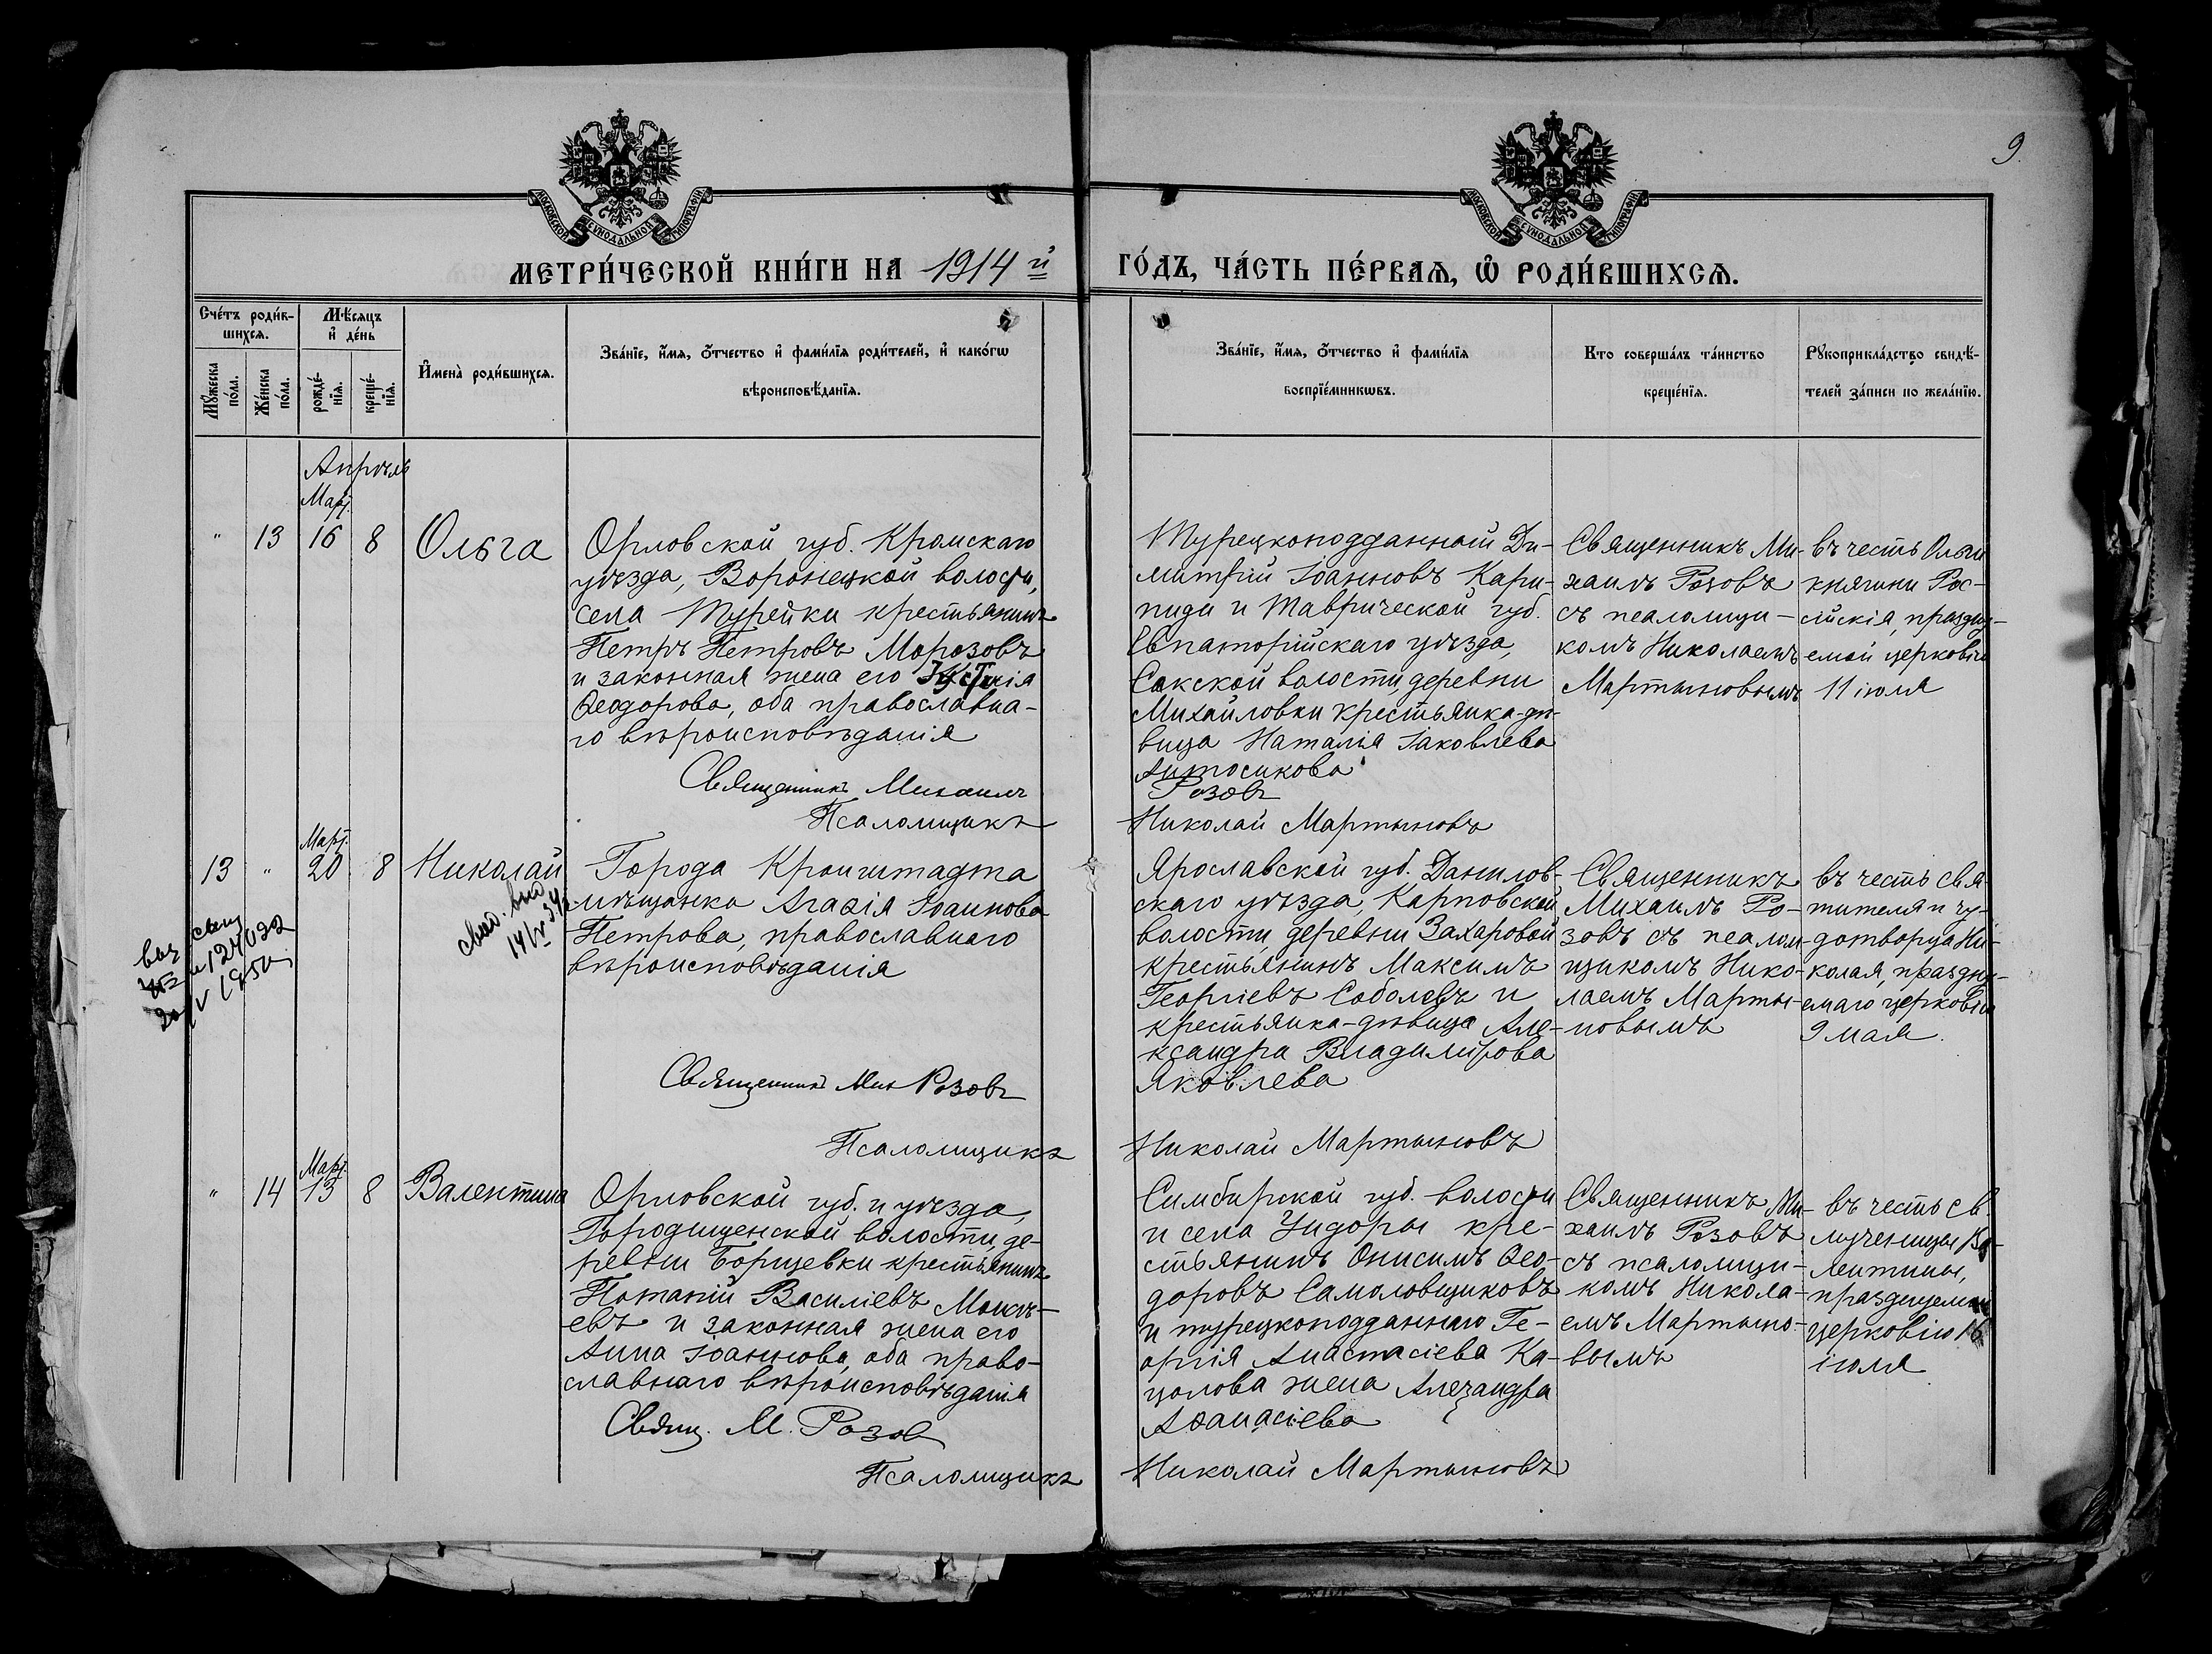 9.
МОСКОВСКОЙ СѴНОДАЛЬНОЙ ТИПОГРАФІИ
МОСКОВСКОЙ СѴНОДАЛЬНОЙ ТИПОГРАФІИ
МЕТРИ́ЧЕСКОЙ КНИ́ГИ НА 1914 й ГО́ДЪ, ЧА́СТЬ ПЕ́РВАѦ, Ѽ РОДИ́ВШИХСѦ.
Сче́тъ роди́в-
шихсѧ.
Мꙋ́жеска
по́ла.
Же́нска
по́ла.
Мѣ́сѧцъ
и҆ де́нь
рожде́-
нїѧ.
креще́-
нїѧ.
И҆мена̀ роди́вшихсѧ.
Зва́нїе, и҆́мѧ, ѻ҆́тчество и҆ фами́лїѧ роди́телей, и҆ како́гѡ
вѣроисповѣ́данїѧ.
Зва́нїе, и҆́мѧ, ѻ҆́тчество и҆ фами́лїѧ
воспрїе́мникѡвъ.
Кто соверша́лъ та́инство
креще́нїѧ.
Рꙋкоприкла́дство свидѣ́-
телей за́писи по жела́нїю.
Апрѣль
Март.
" 13 16 8 Ольга
Орловской губ. Кромскаго
уѣзда, Воронецкой волости,
села Турейки крестьянинъ
Петръ Петровъ Морозовъ
и законная жена его Устинія
Ѳеодорова, оба православна-
го вѣроисповѣданія
Священникъ Михаилъ
Псаломщикъ
Турецкоподданный Ди-
митрій Іоанновъ Кари-
пиди и Таврической губ.
Евпаторійскаго уѣзда,
Сакской волости, деревни
Михайловки крестьянка-дѣ-
вица Наталія Іаковлева
Антосикова
Розовъ
Николай Мартыновъ
Священникъ Ми-
хаилъ Розовъ
съ псаломщи-
комъ Николаемъ
Мартыновымъ
въ честь Ольги
княгини Рос-
сійскія, праздну-
емой церковію
11 іюля
Март.
13 " 20 8 Николай
14/V 34
вы
20/V 1950
Города Кронштадта
мѣщанка Агаѳія Іоаннова
Петрова, православнаго
вѣроисповѣданія
Священникъ Мих Розовъ
Псаломщикъ
Ярославской губ. Данилов-
скаго уѣзда, Карповской
волости, деревни Захаровой
крестьянинъ Максимъ
Георгіевъ Соболевъ и
крестьянка-дѣвица Але-
ксандра Владимірова
Яковлева
Николай Мартыновъ
Священникъ
Михаилъ Ро-
зовъ съ псалом-
щикомъ Нико-
лаемъ Марты-
новымъ
въ честь свя-
тителя и чу-
дотворца Ни-
колая, праздну-
емаго церковію
9 мая.
Март.
" 14 13 8 Валентина
Орловской губ. и уѣзда,
Городищенской волости, де-
ревни Борщевки крестьянинъ
Потапій Василіевъ
и законная жена его
Анна Іоаннова, оба право-
славнаго вѣроисповѣданія
Свящ. М. Розов
Псаломщикъ
Симбирской губ. волости
и села кре-
стьянинъ Онисимъ Ѳео-
доровъ Самоловщиковъ
и турецкоподданнаго Ге-
оргія Анастасіева Ка-
цолова жена Александра
Аѳанасіева
Николай Мартыновъ
Священникъ Ми-
хаилъ Розовъ
съ псаломщи-
комъ Никола-
емъ Мартыно-
вымъ
въ честь св.
мученицы Ва-
лентины,
празднуемой
церковію 16
іюля